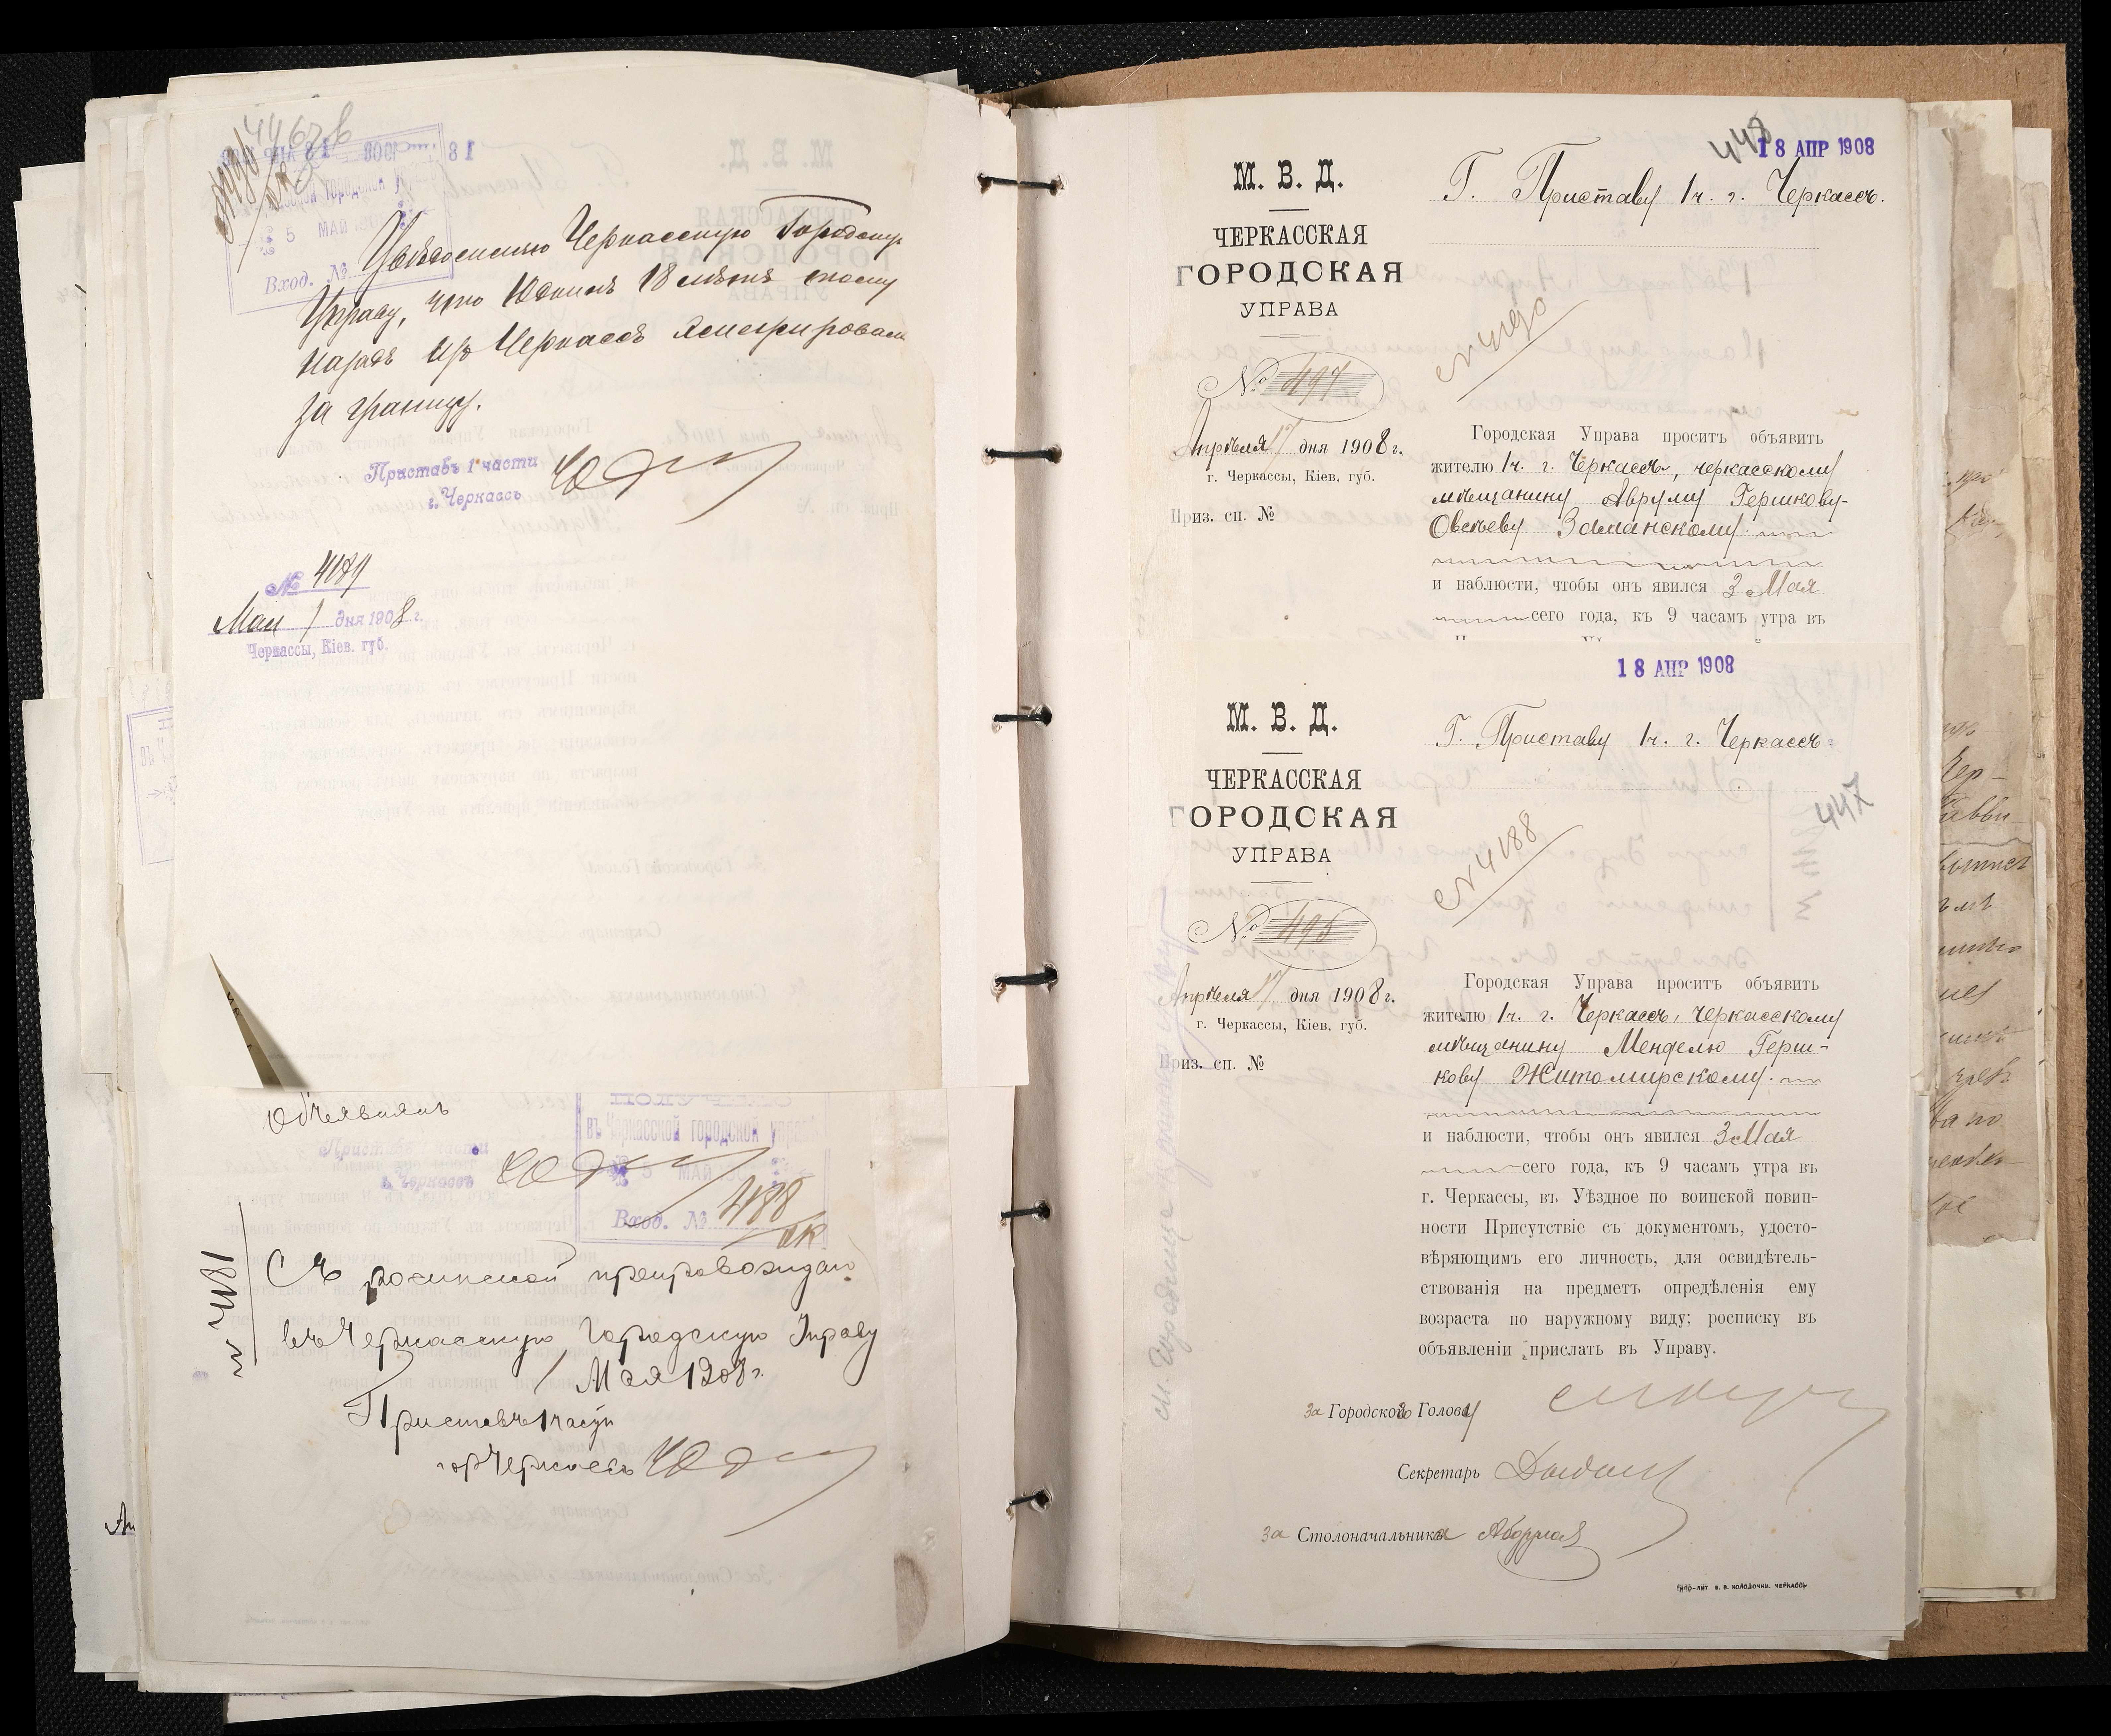 446 об
Вход. №
5 МАЙ
Увѣдомляю Черкасскую Городскую
Управу, что Юдкинъ 18 лѣтъ тому
назадъ изъ Черкассъ эмигрировалъ
за границу.
Приставъ 1 части
г. Черкассъ
№ 4189
Мая 1 дня 1908 г.
Черкассы, Кіев. губ.
Объявилъ
Приставъ 1 части
г. Черкассъ
въ Черкасской городской управѣ
5 МАЙ
Вход. № 4188
№ 4181
Съ роспиской препровождаю
въ Черкасскую Городскую Управу
1 Мая 1908 г.
Приставъ 1 части
гор Черкассъ
448
18 АПР 1908
М. В. Д.
ЧЕРКАССКАЯ
ГОРОДСКАЯ
УПРАВА
№ 497
Апрѣля 17 дня 1908 г.
г. Черкассы, Кіев. губ.
Приз. сп. №
Г. Приставу 1 ч. г. Черкассъ.
№ 4190
Городская Управа проситъ объявить
жителю 1 ч. г. Черкассъ, черкасскому
мѣщанину Аврулу Гершкову-
Овсѣеву Заманскому.
и наблюсти, чтобы онъ явился 3 Мая
сего года, къ 9 часамъ утра въ
18 АПР 1908
М. В. Д.
ЧЕРКАССКАЯ
ГОРОДСКАЯ
УПРАВА
№ 496
Апрѣля 17 дня 1908 г.
г. Черкассы, Кіев. губ.
Приз. сп. №
Г. Приставу 1 ч. г. Черкассъ
447
№ 4188
Городская Управа проситъ объявить
жителю 1 ч. г. Черкассъ, черкасскому
мѣщанину Менделю Герш-
кову Житомирскому.
и наблюсти, чтобы онъ явился 3 Мая
сего года, къ 9 часамъ утра въ
г. Черкассы, въ Уѣздное по воинской повин-
ности Присутствіе съ документомъ, удосто-
вѣряющимъ его личность, для освидѣтель-
ствованія на предметъ опредѣленія ему
возраста по наружному виду; росписку въ
объявленіи прислать въ Управу.
За Городского Голову
Секретарь
За Столоначальника